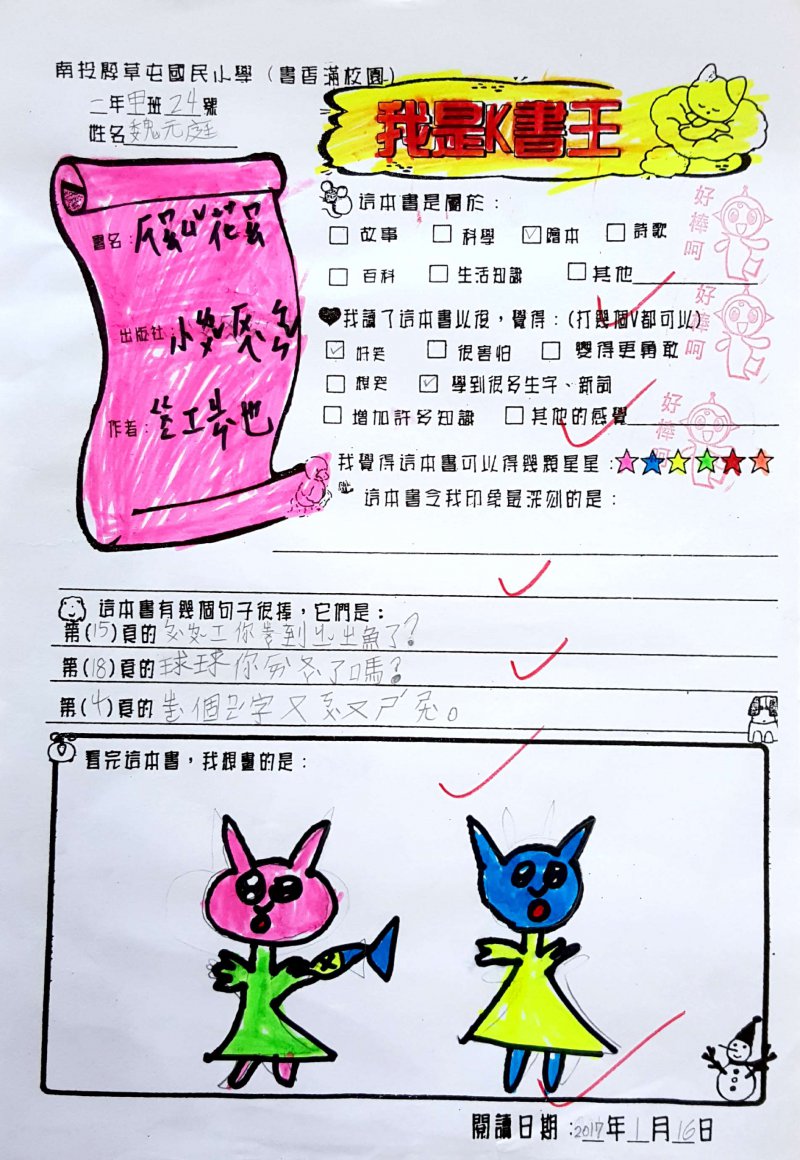 南投縣草屯國民小學（書香滿校園）
二年甲班24號
姓名魏元庭
我是K書王
書名：
出版社：小
作者：
這本書是屬於：
□故事 □科學 ☑繪本 □詩歌
□百科 □生活知識 □其他
好棒呵
我讀了這本書以後，覺得：(打幾個V都可以)
☑好笑 □很害怕 □變得更勇敢
□想哭 ☑學到很多生字、新詞
□增加許多知識 □其他的感覺
好棒呵
好棒呵
我覺得這本書可以得幾顆星星：
這本書令我印象最深刻的是：
這本書有幾個句子很棒，它們是：
第(15)頁的 你 到 出魚了？
第(18)頁的球球你 了嗎？
第(4)頁的 個 字又 又 。
看完這本書，我想畫的是：
閱讀日期：2017年1月16日